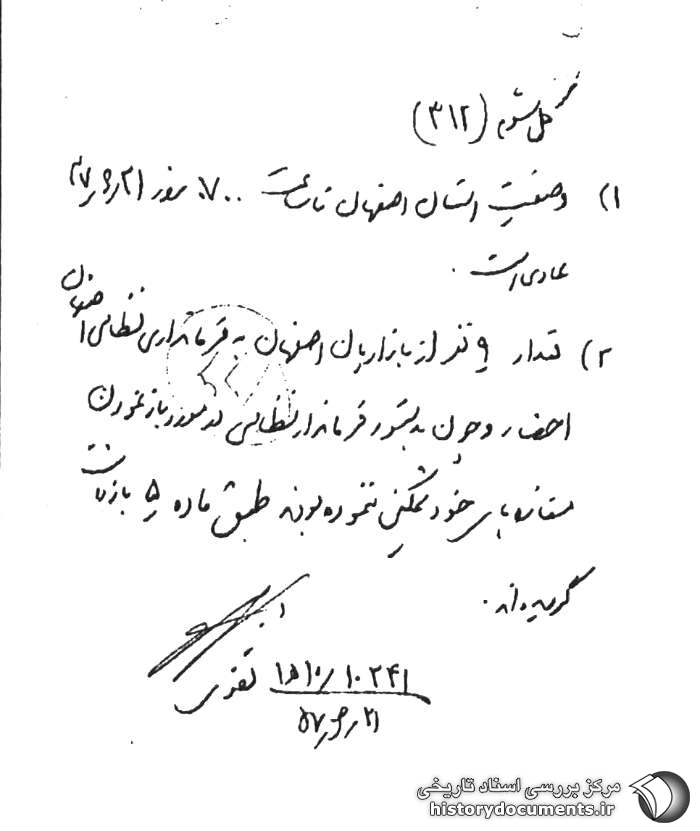 (۳۱۲)
۱) وضعیت استان اصفهان تا ساعت ۰۷۰۰ روز ۵۷/۹/۲۱
عادی است .
۲) تعداد ۹ نفر از بازاریان اصفهان به فرمانداری نظامی اصفهان
احضار و چون بدستور فرماندار نظامی در مورد باز نمودن
مغازه های خود تمکین ننموده بودند طبق ماده ۵ بازداشت
گردیده اند .
۱۵۱۰/۱۰۲۴۱ تقوی
۵۷/۹/۲۱
مرکز بررسی اسناد تاریخی
historydocuments.ir